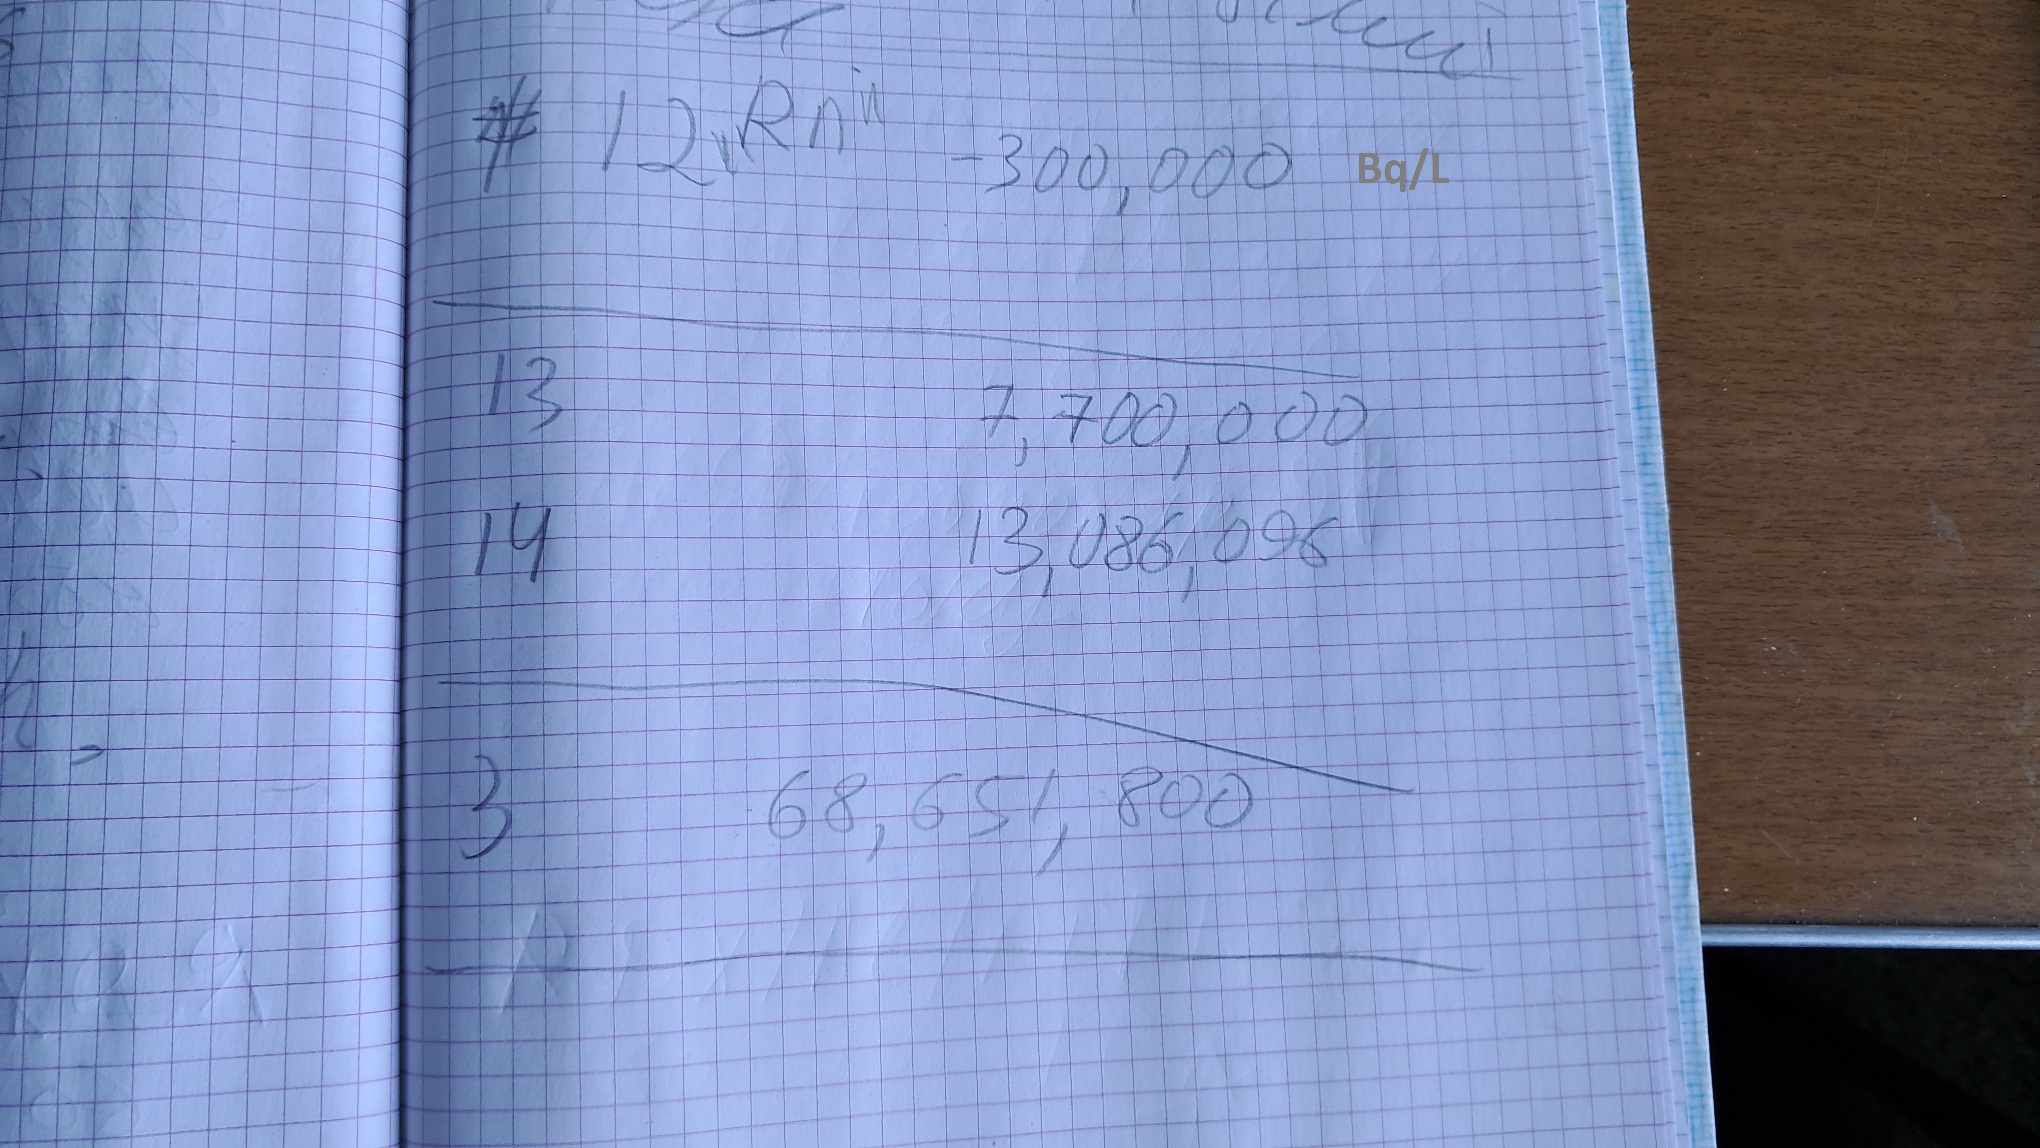 # 12 "Rn" -300,000 Bq/L
13 7,700,000
14 13,086,096
3 68,651,800